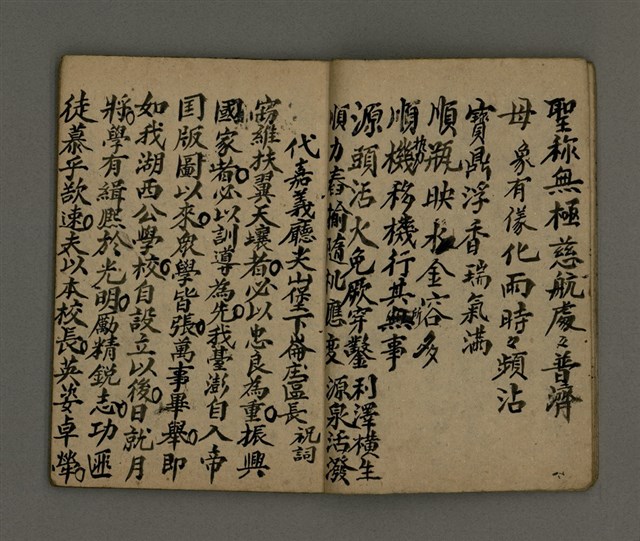 聖稱無極慈航處々普濟
母象有儀化雨時々頻沾
寶鼎浮香瑞氣滿
順瓶映水金容多
順機移機行其所無事
源頭活火免厥穿鑿 利澤橫生
順力春愉隨机應變 源泉活潑
代嘉義廳大山保下崙庄區長 祝詞
窃維扶翼天壤者必以忠良為重振興
國家者必以訓導為先我臺澎自入帝
国版圖以來众學皆張萬事畢舉即
如我湖西公學校自設立以後日就月
將學有緝熙於光明勵精銳志功匪
徒慕乎歆速未以本校長英姿卓犖